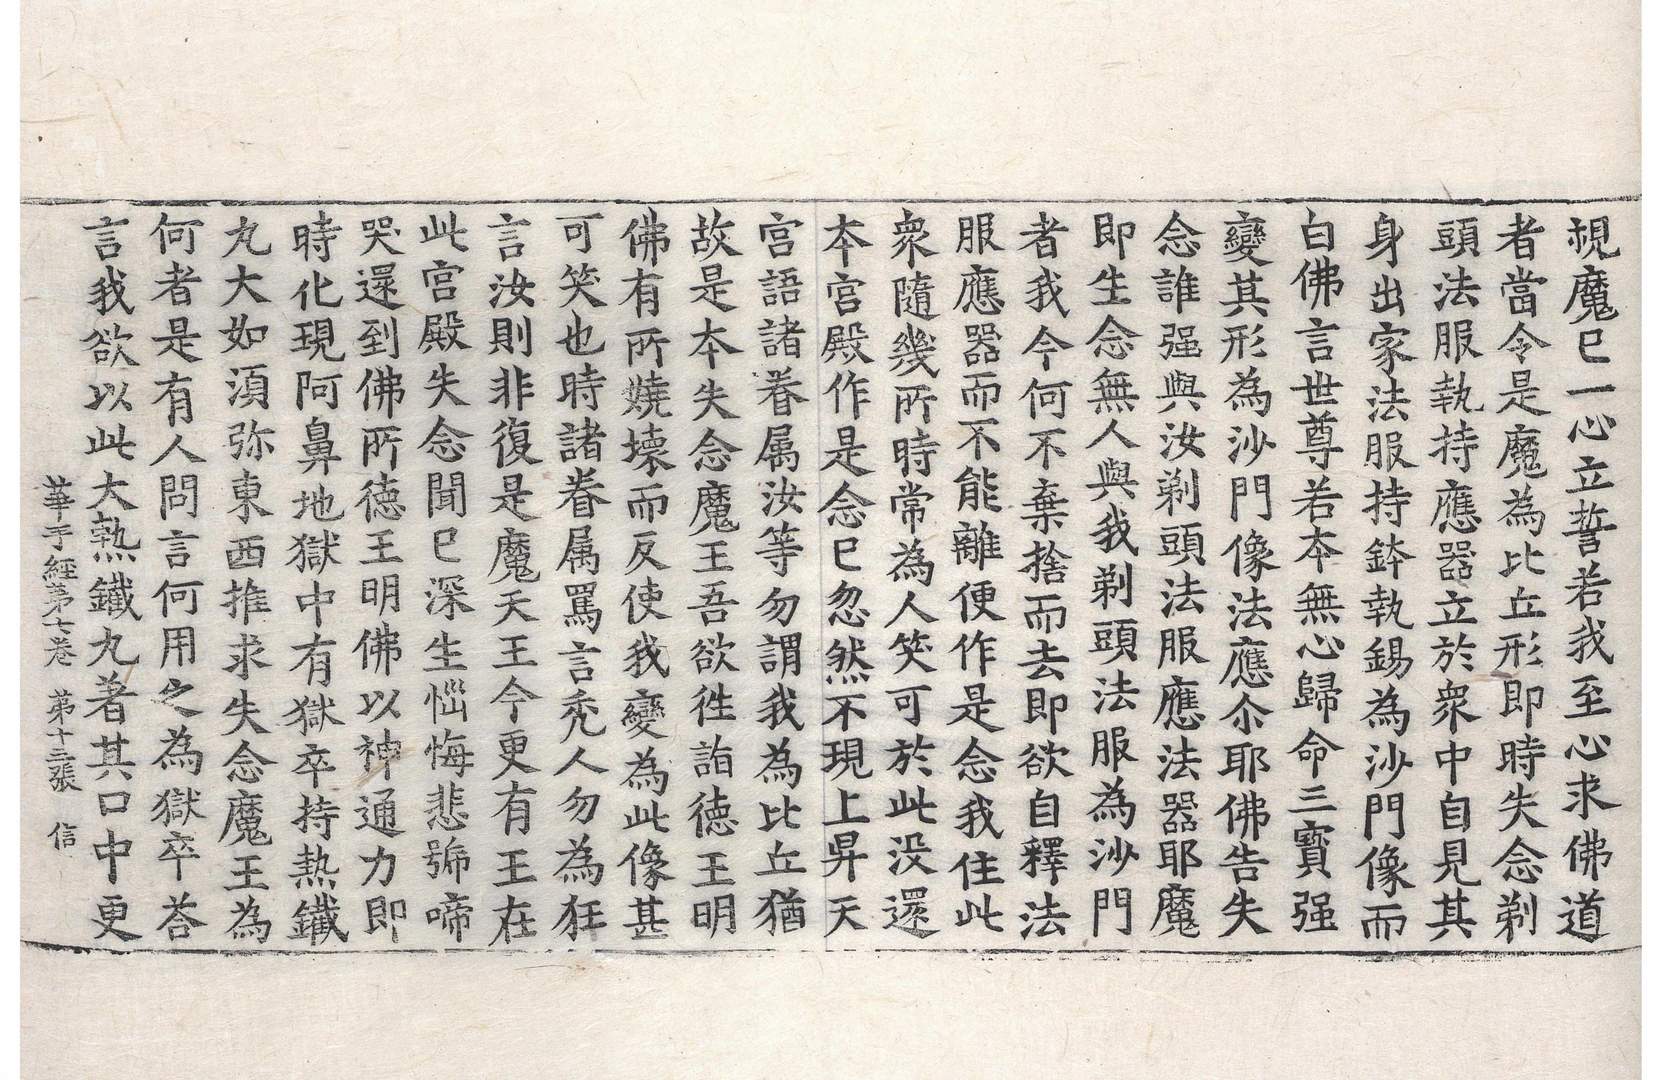 覩魔已一心立誓若我至心求佛道
者當令是魔為比丘形即時失念剃
頭法服執持應器立於衆中自見其
身出家法服持鉢執錫為沙門像而
白佛言世尊若本無心歸命三寶强
變其形為沙門像法應尒耶佛告失
念誰强與汝剃頭法服應法器耶魔
即生念無人與我剃頭法服為沙門
者我今何不棄捨而去即欲自釋法
服應器而不能離便作是念我住此
衆隨幾所時常為人笑可於此没還
本宮殿作是念已忽然不現上昇天
宮語諸眷属汝等勿謂我為比丘猶
故是本失念魔王吾欲徃詣德王明
佛有所燒壞而反使我變為此像甚
可笑也時諸眷属罵言禿人勿為狂
言汝則非復是魔天王今更有王在
此宮殿失念聞已深生惱悔悲號啼
哭還到佛所德王明佛以神通力即
時化現阿鼻地獄中有獄卒持熱鐵
丸大如湏弥東西推求失念魔王為
何者是有人問言何用之為獄卒荅
言我欲以此大熱鐵丸著其口中更
華手經第七卷 第十三張 信